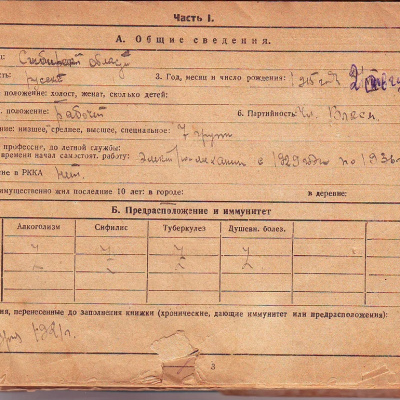 Часть I.
А. Общие сведения.
Сибирской област
3. Год, месяц и число рождения: 1915 г.
положение: холост, женат, сколько детей:
положение: Рабочий 6. Партийность: Чл. Влксм.
ние: низшее, среднее, высшее, специальное: 7 групп
професия, до летной службы:
времени начал самостоят. работу: с 1929 года по 1936
ие в РККА Нет.
имущественно жил последние 10 лет: в городе: в деревне:
Б. Предрасположение и иммунитет
Алкоголизм Сифилис Туберкулез Душевн. болез.
ия, перенесенные до заполнения книжки (хронические, дающие иммунитет или предрасположения):
1921 г.
3